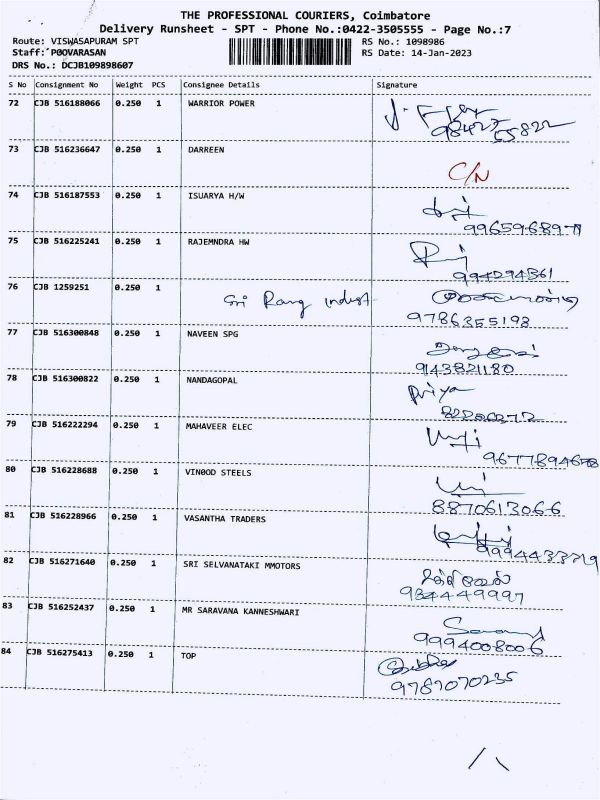 THE PROFESSIONAL COURIERS, Coimbatore
Delivery Runsheet - SPT - Phone No.:0422-3505555 - Page No.:7
Route: VISWASAPURAM SPT
RS No.: 1098986
Staff: POOVARASAN
RS Date: 14-Jan-2023
DRS No.: DCJB109898607
S No Consignment No Weight PCS Consignee Details Signature
72 CJB 516188066 0.250 1 WARRIOR POWER
73 CJB 516236647 0.250 1 DARREEN
C/N
74 CJB 516187553 0.250 1 ISUARYA H/W
75 CJB 516225241 0.250 1 RAJEMNDRA HW
994294361
76 CJB 1259251 0.250 1
Sri Rang Indust
9786355193
77 CJB 516300848 0.250 1 NAVEEN SPG
9143821180
78 CJB 516300822 0.250 1 NANDAGOPAL
Priya
79 CJB 516222294 0.250 1 MAHAVEER ELEC
80 CJB 516228688 0.250 1 VINOOD STEELS
8870613066
81 CJB 516228966 0.250 1 VASANTHA TRADERS
82 CJB 516271640 0.250 1 SRI SELVANATAKI MMOTORS
934449997
83 CJB 516252437 0.250 1 MR SARAVANA KANNESHWARI
9994008006
84 CJB 516275413 0.250 1 TOP
9787070235